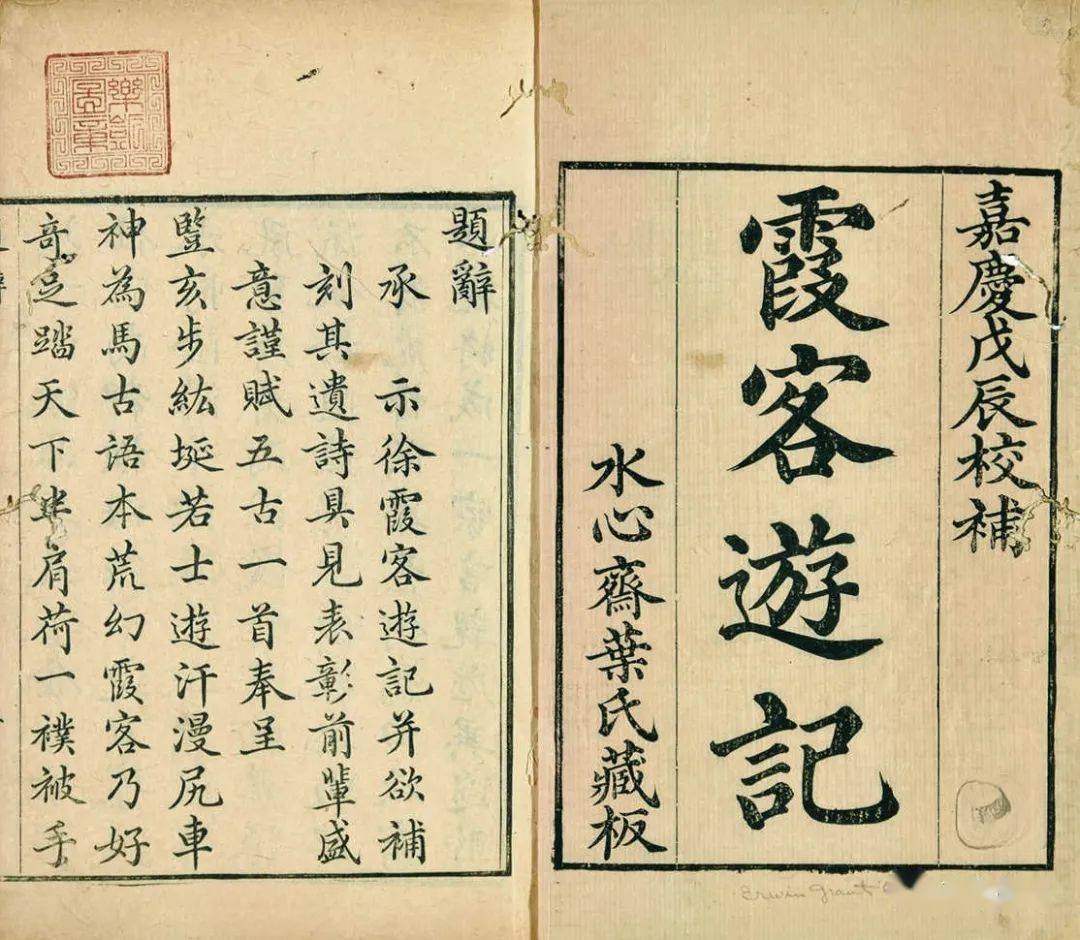 嘉慶戊辰校補
霞客遊記
水心齋葉氏藏板
題辭
承 示徐霞客遊記并欲補
刻其遺詩具見表彰前輩盛
意謹賦五古一首奉呈
豎亥步紘埏若士遊汗漫尻車
神為馬古語本荒幻霞客乃好
奇足踏天下半肩荷一襆被手
Erwin Grant